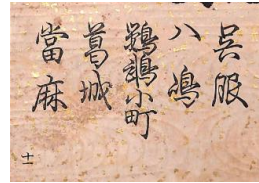 呉服
八嶋
鸚鵡小町
葛城
當麻
十一